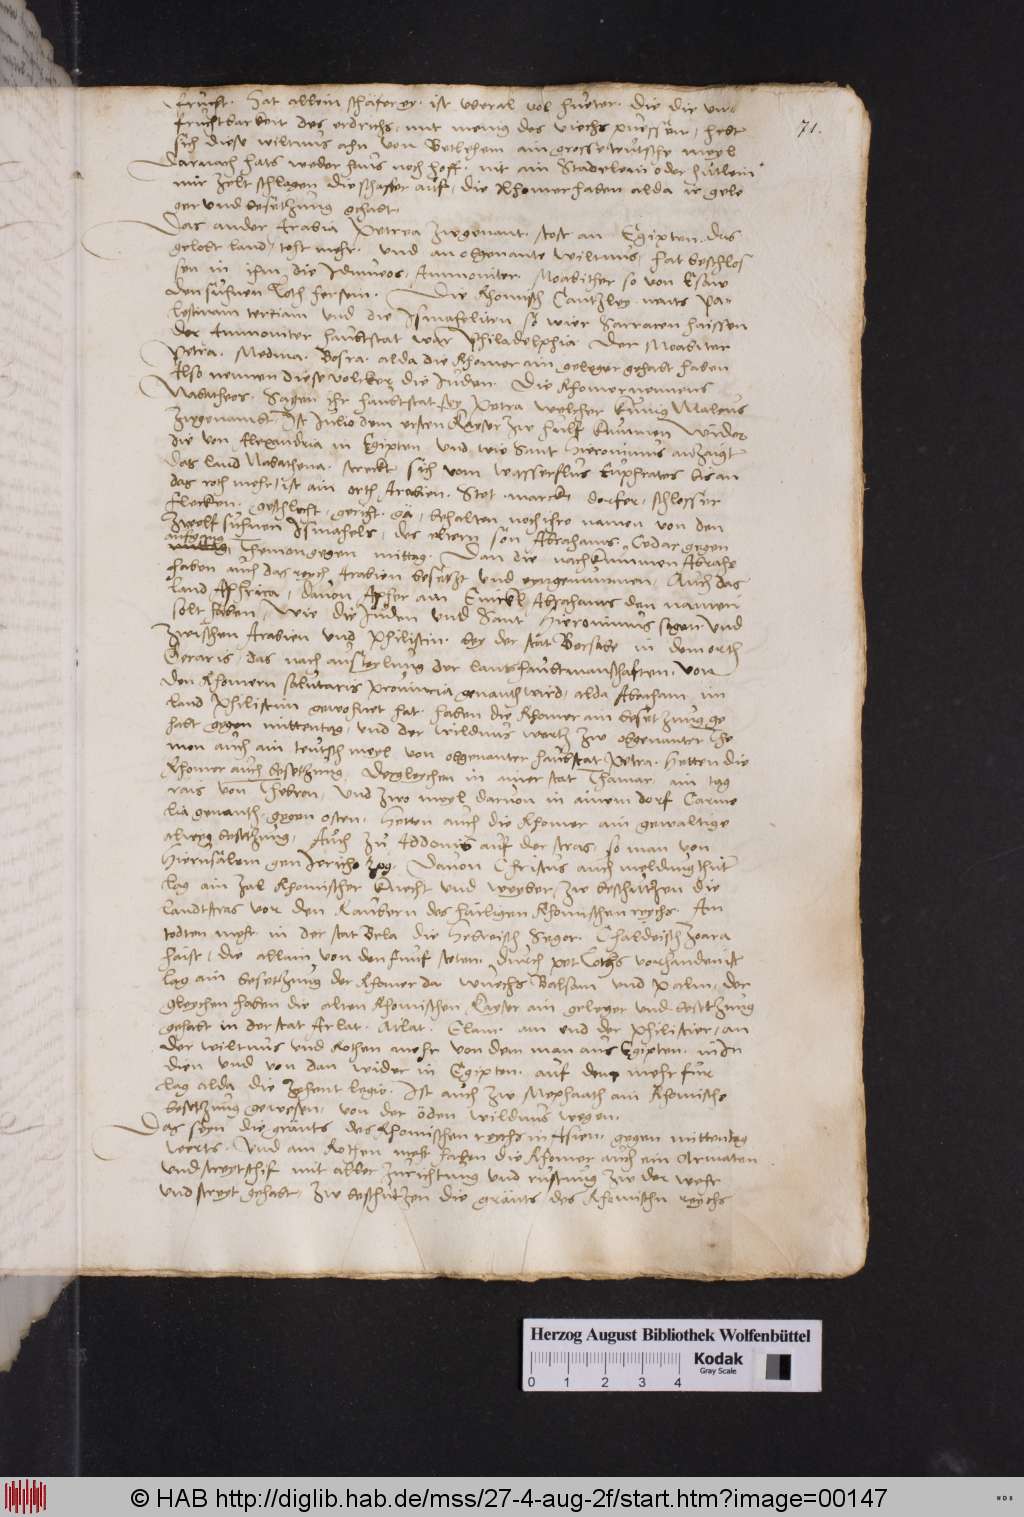 frucht. Hat allein schäferey. ist uberal vol hueter. die die un-
fruchtbarkeit des erdrichs, mit menig des viechs püessen, hebt
sich diese wiltnus ahn von Bethlehem ain grosse teutsche meyl
Darnach hats weder haus noch hoff. nit ain Städerlein oder hütlein
nur zelt schlagen die schaffer auf, die Rhomer haben alda ir gele
ger und besetzung gehabt.
Das ander Arabia Petrea zugenant. stost an Egipten. das
gelobt land, toht mehr. und an obgenante wiltnus, hat beschlos
sen in ihm die Idumeos, Ammoniter. Moabither so von Esau
den suhnen Loth hersein. Die Rhomisch Cantzley nents Pa-
lestinam terciam und die Ismaheliten so wier Sarracen haissen
der Ammoniter haubtstat war Philadelphia. Der Moabiter
Petra. Medina. Bosra. alda die Rhomer ain geleger gehabt haben
Also nennen diese volcker die Juden. Die Rhomer nennens
Nabatheos. Sagen ihr haubtstat sey Petra welcher Künig Malcus
zugenambt. Ist Julio dem ersten Kayser zu hulf kummen wider
die von Alexandria in Egipten und wie Sant Hieronimus anzaigt
das land Nabathena. streckt sich vom wasserflus Euphrates bis an
das roth mehr, ist ain orth Arabien. Stet. marckt. dorfer, schlosser
flecken. geschlecht, gericht. gä, behalten noch ihre namen von den
zwelf suhnen Ismahels, des eltern son Abrahams. Cedar gegen
aufgang
mittag Themon gegen mittag. Dan die nachkummen Abrahe
haben auch das reych Arabien besetzt und eyngenummen. Auch das
land Aphrica, davon Apher ain Enickl Abrahams den namen
solt haben, wie die Juden und Sant Hieronimus sagen und
zwischen Arabien und Philistin. bey der stat Bersabe in dem orth
Geraris, das nach austeylung der lantshaubtmanschaften, von
den Rhomern salutaris provincia genanth wird, alda Abraham im
land Philistim gewohnet hat. haben die Rhomer ain besetzung ge
habt gegen mittentag, und der wildnus werts zw obgenanter The
mon auch ain teutsch meyl von obgenanter haubtstat Petra. hetten die
Rhomer auch besetzung. Dergleychen in ainer stat Thamar. ain tag
rais von Hebron, Und zwo meyl darvon in ainem dorf Carme
lia genanth. gegen osten, hetten auch die Rhomer ain gewaltige
alweg besetzung, Auch zu Addomis auf der stras so man von
Hierusalem gen Jericho zog. Davon Christus auch meldung thut
lag ain zal Rhomischer knecht und weyber, zw beschutzen die
landtstras vor den Raubern des hailigen Rhomischen reychs. Am
todten mehr in der stat Bela die Hebreisch Segor. Chaldeisch Zoara
haist, die allain von den funf steten durch pet Loths vorhanden ist
lag ain besetzung der Rhomer da wuechs Balsam und palm, der
gleychen haben die alten Rhomischen Kayser ain geleger und besetzung
gehabt in der stat Arlat. Ailat. Elam. am end der Philistier, an
der wiltnus und Rothen mehr von dem man aus Egipten. in In
dien und von dan wider in Egipten. auf dem mehr fur
lag alda die zehent legio. Ist auch zw Mephaath ain Rhomische
besetzung gewesen, von der öden wildnus wegen.
Das sein die gränts des Rhomischen reychs in Asien. gegen mittentag
werts. Und am Rothen mehr haben die Rhomer auch ein Armaten
und streytschif mit aller zurichtung und rustung zw der wehr
und streyt gehabt, zw beschützen die gränts des Rhomischn reychs
71.
Herzog August Bibliothek Wolfenbüttel
Kodak
Gray Scale
0 1 2 3 4
© HAB http://diglib.hab.de/mss/27-4-aug-2f/start.htm?image=00147